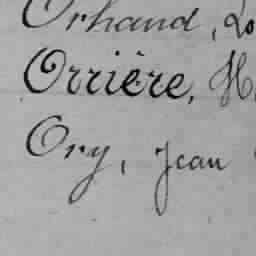 Orhand, Lo
Orrière, H
Ory, Jean